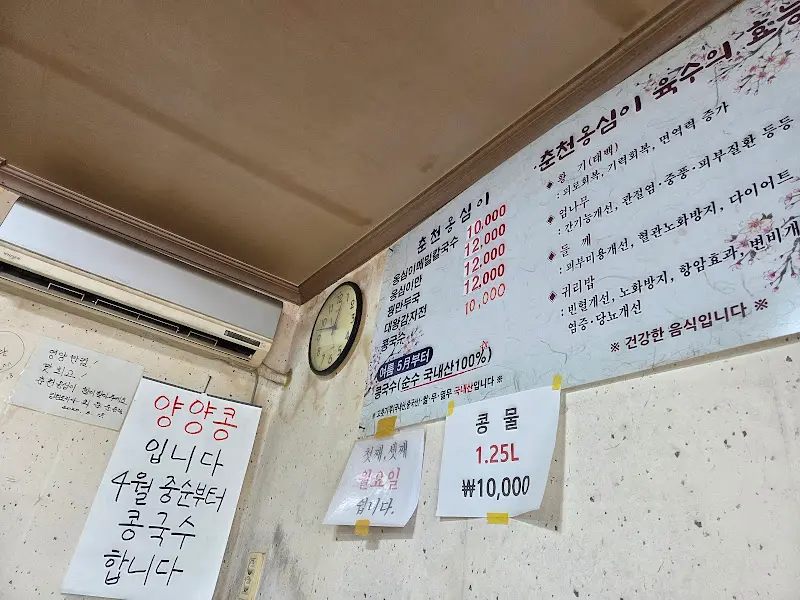 춘천옹심이
옹심이메밀칼국수 10,000
옹심이만 12,000
왕만두국 12,000
대왕감자전 12,000
콩국수 10,000
여름 5月부터
콩국수(순수 국내산100%)
춘천옹심이 육수의 효능
◆ 황 기(태백)
: 피로회복, 기력회복, 면역력 증가
◆ 엄나무
: 간기능개선, 관절염·중풍·피부질환 등등
◆ 들 깨
: 피부미용개선, 혈관노화방지, 다이어트
◆ 귀리밥
: 빈혈개선, 노화방지, 항암효과, 변비개
염증·당뇨개선
※ 건강한 음식입니다 ※
양양콩
입니다
4월 중순부터
콩국수
합니다
첫째, 셋째
월요일
쉽니다.
콩 물
1.25L
₩10,000